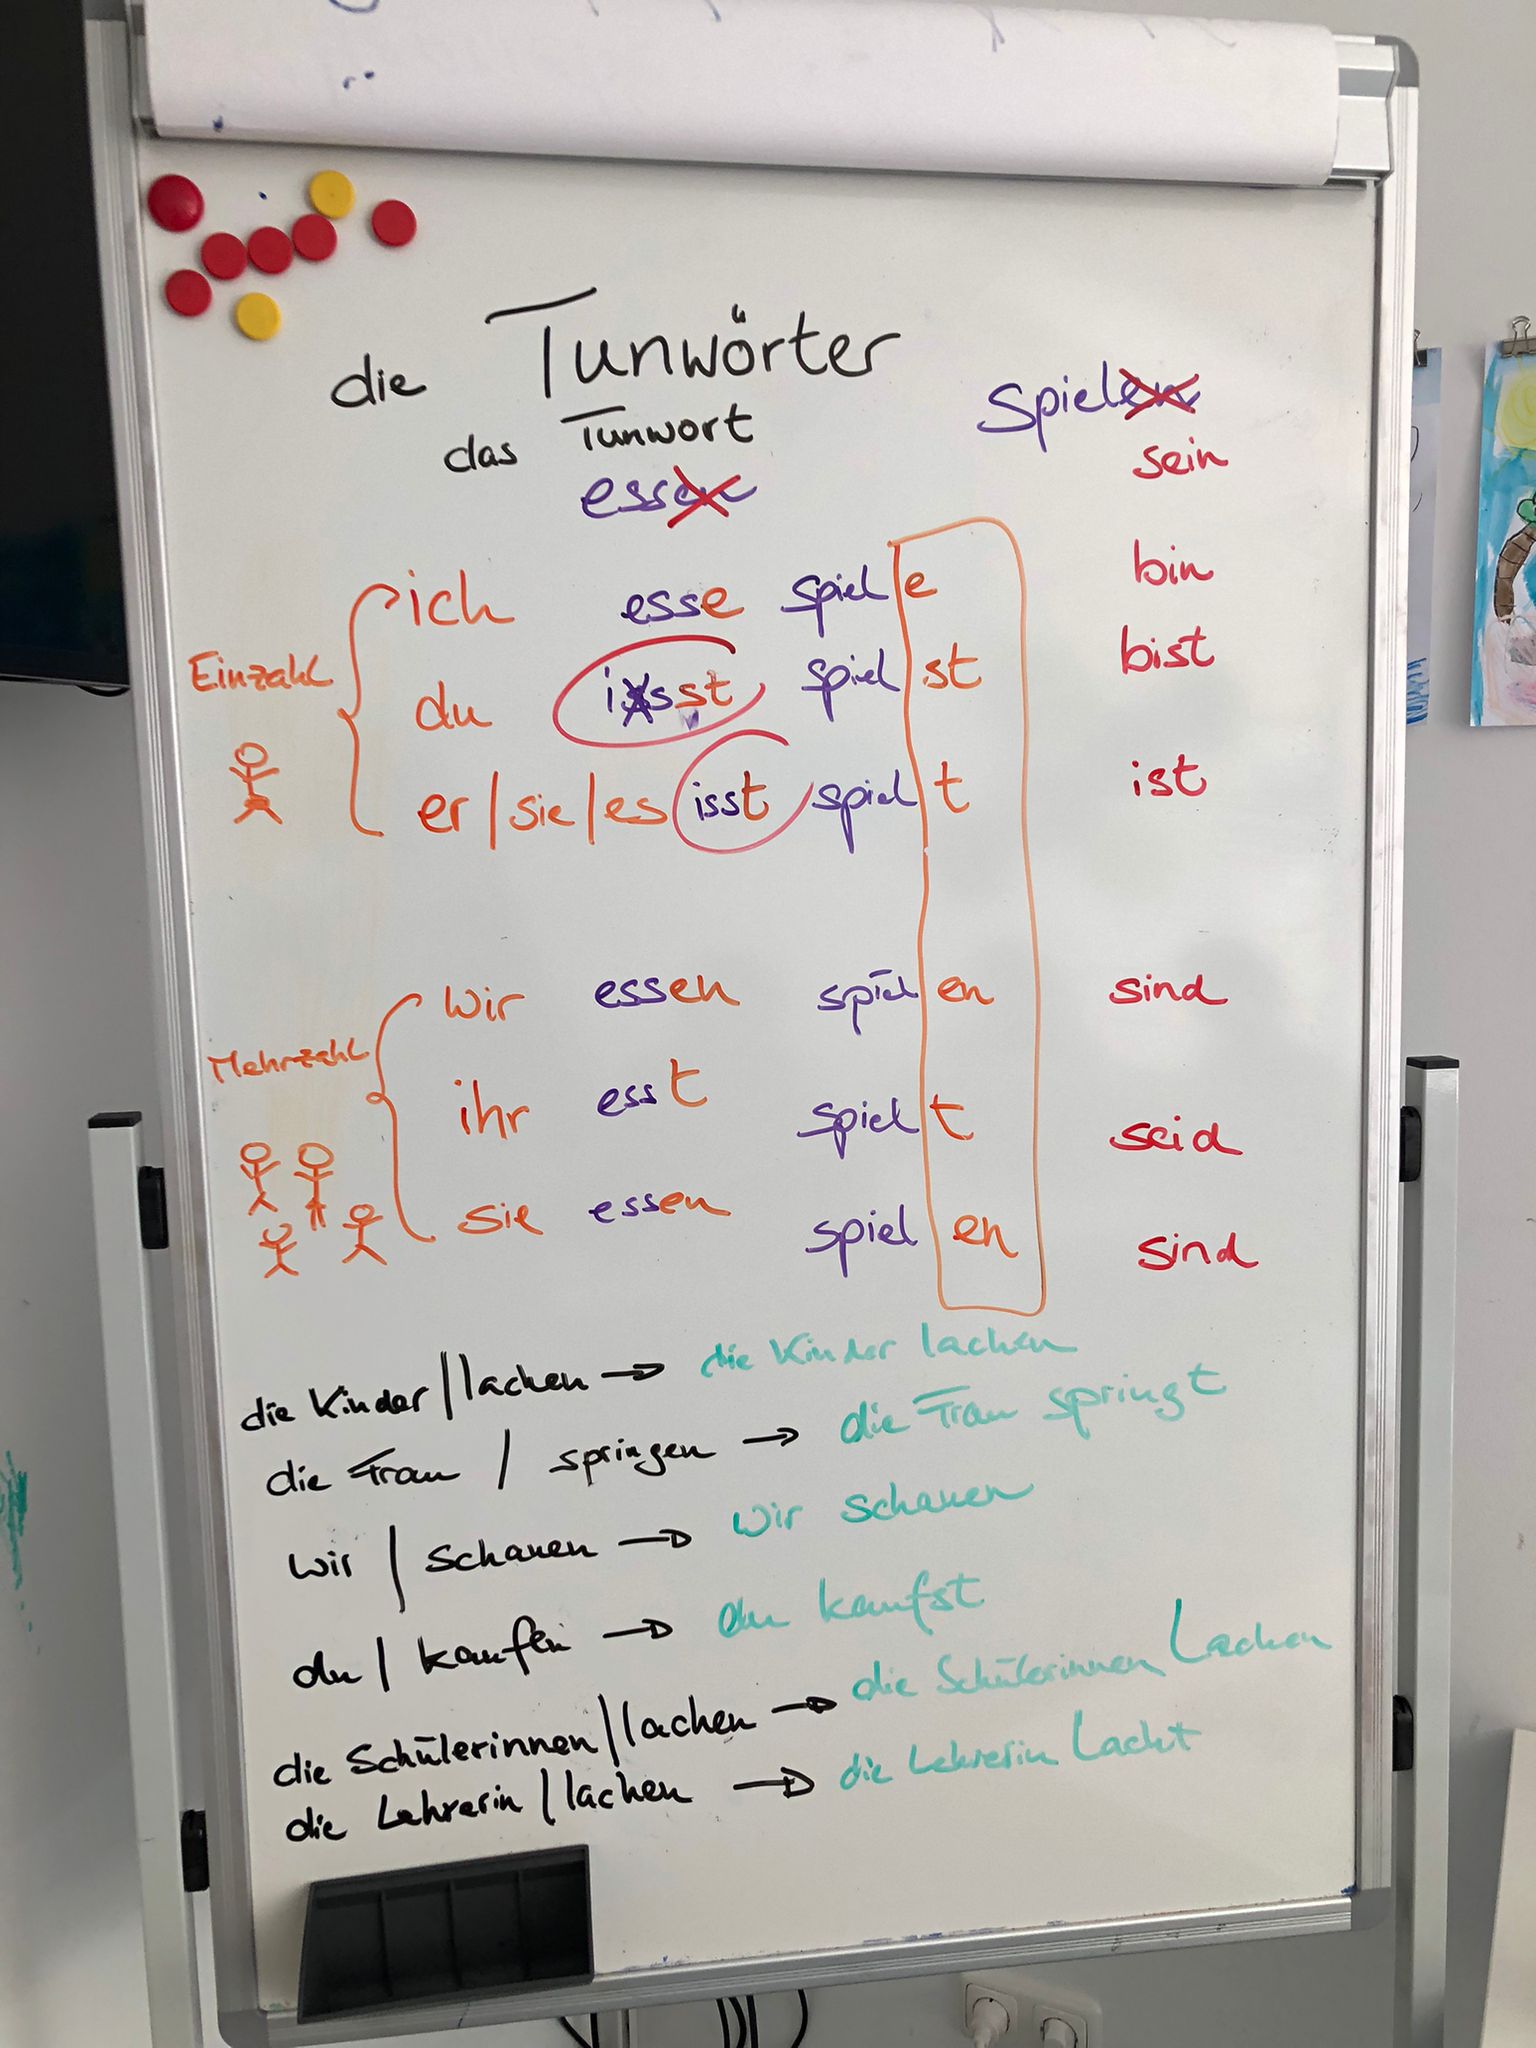 die Tunwörter
das Tunwort
essen
spielen
sein
Einzahl
ich esse spiel e bin
du issst spiel st bist
er/sie/es isst spiel t ist
Mehrzahl
wir essen spiel en sind
ihr esst spiel t seid
sie essen spiel en sind
die Kinder/lachen → die Kinder lachen
die Frau / springen → die Frau springt
wir / schauen → wir schauen
du / kaufen → du kaufst
die Schülerinnen/lachen → die Schülerinnen Lachen
die Lehrerin / lachen → die Lehrerin Lacht